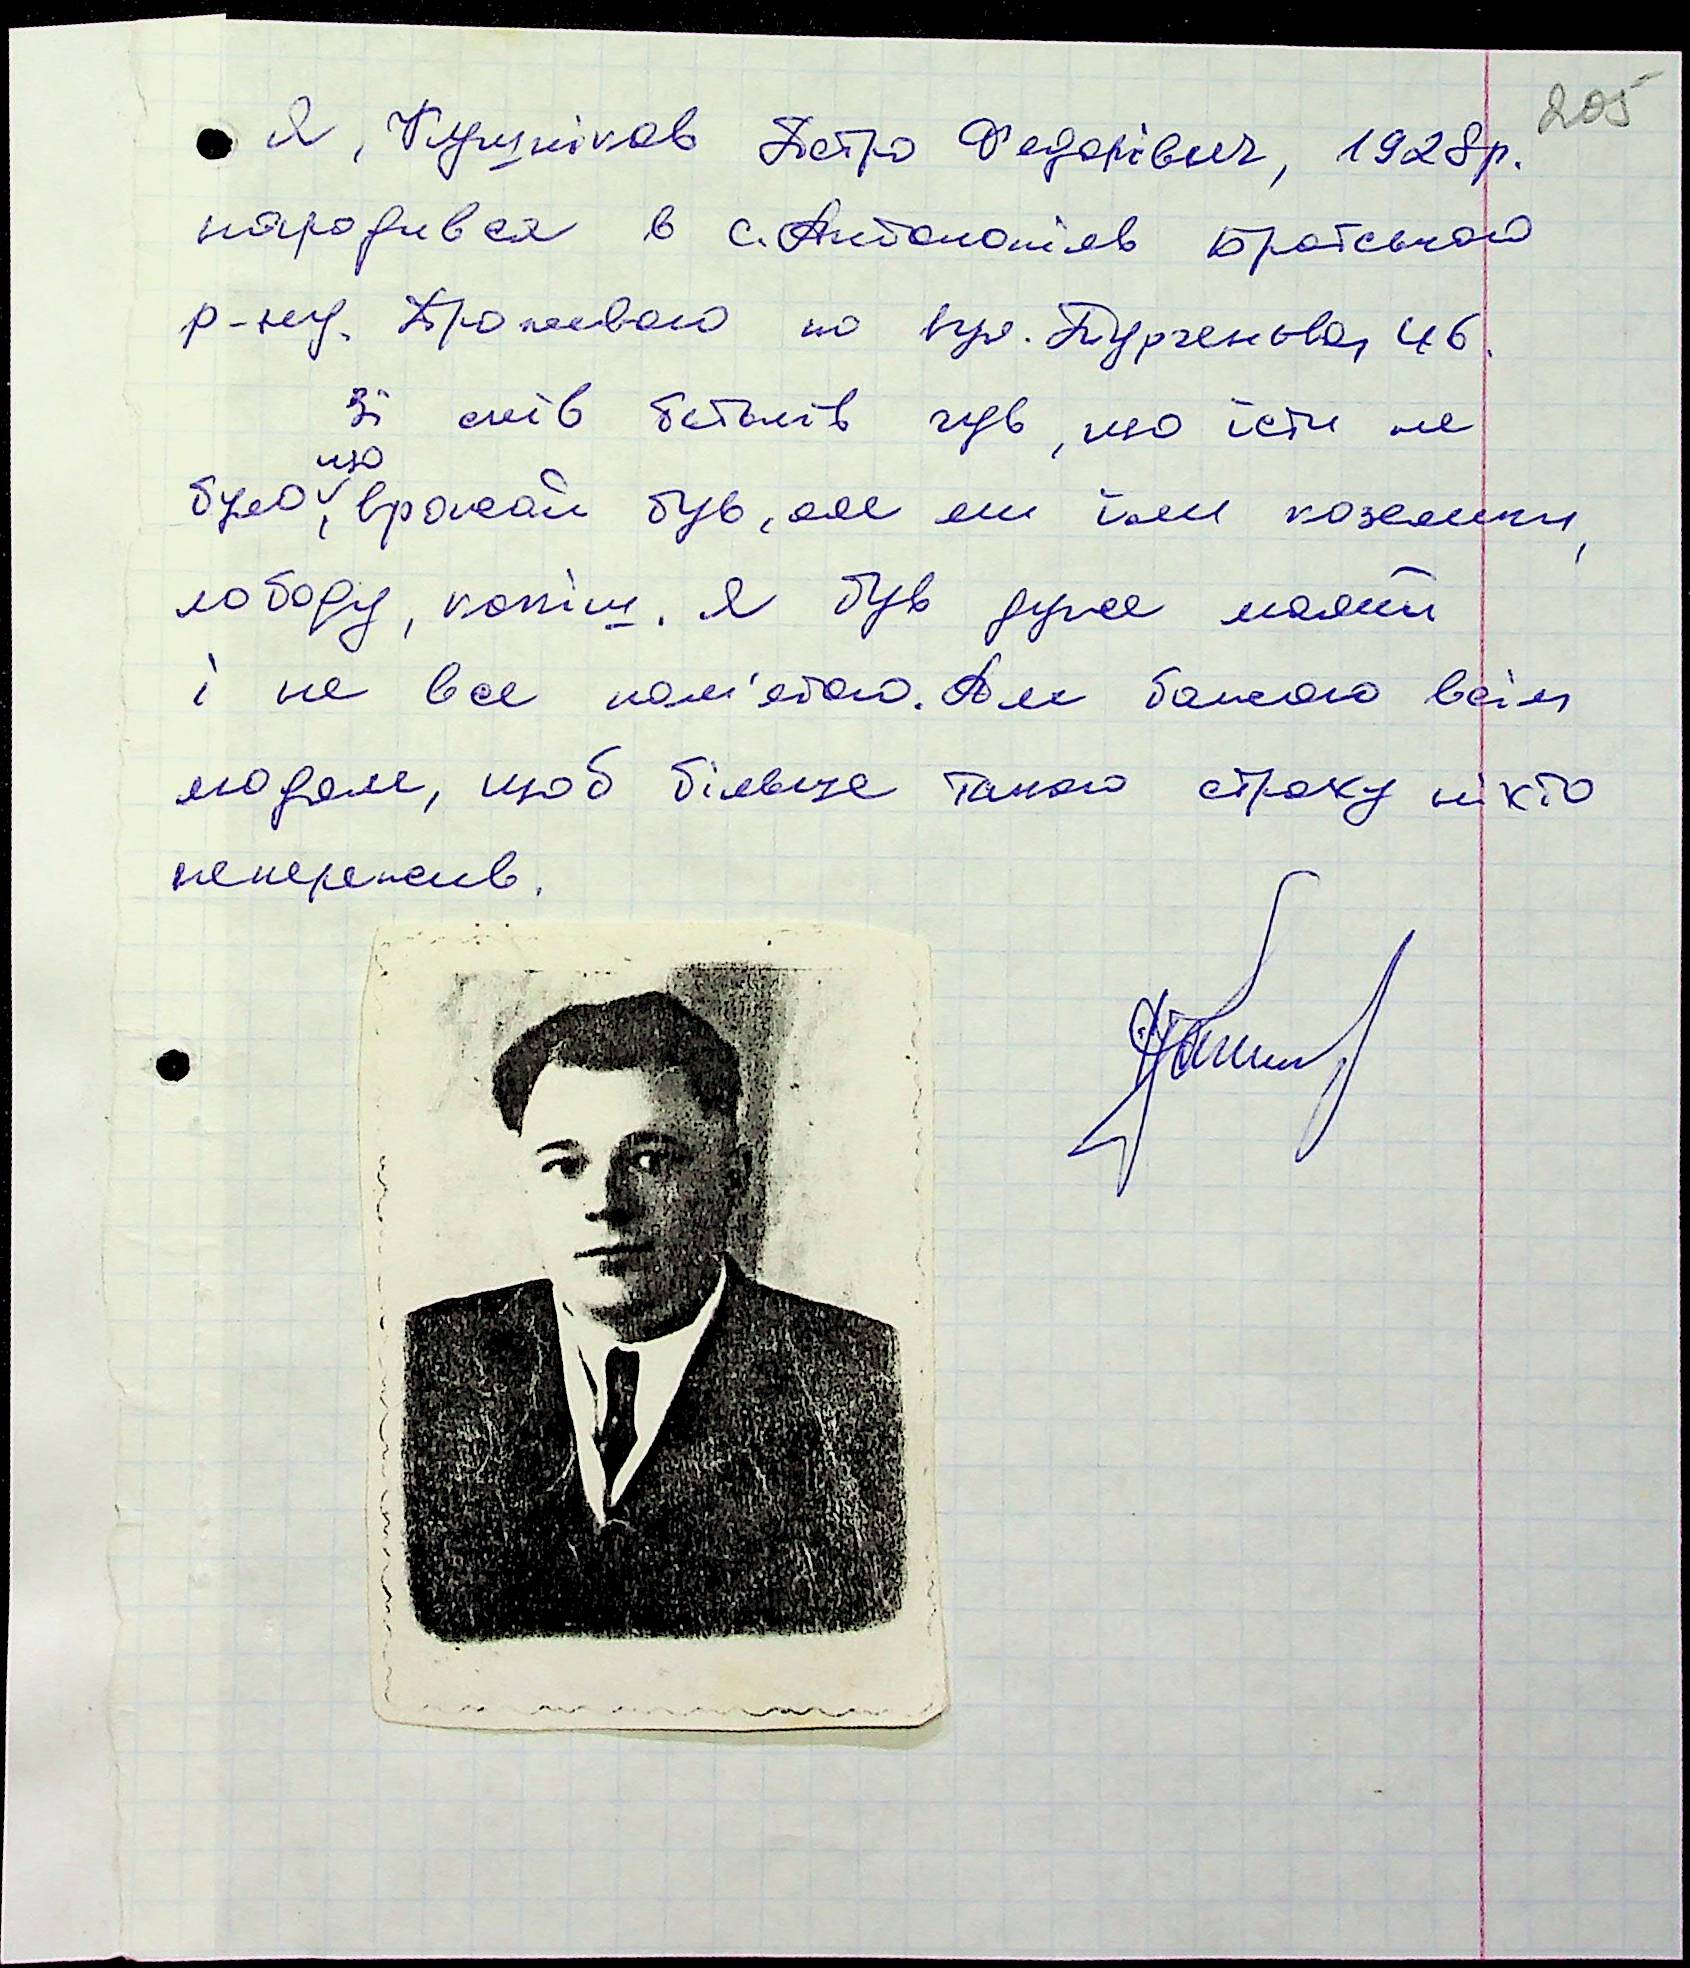 205
Я, Кушніков Петро Федорівич, 1928р.
народився в с. Антонопіль Братського
р-ну. Проживаю по вул. Тургенєва, 46.
Зі слів батьків чув, що їсти не
було, що врожай був, але ми їли козелики,
лободу, капіш. Я був дуже малий
і не все пам'ятаю. Але бажаю всім
людям, щоб більше такого страху ніхто
непережив.